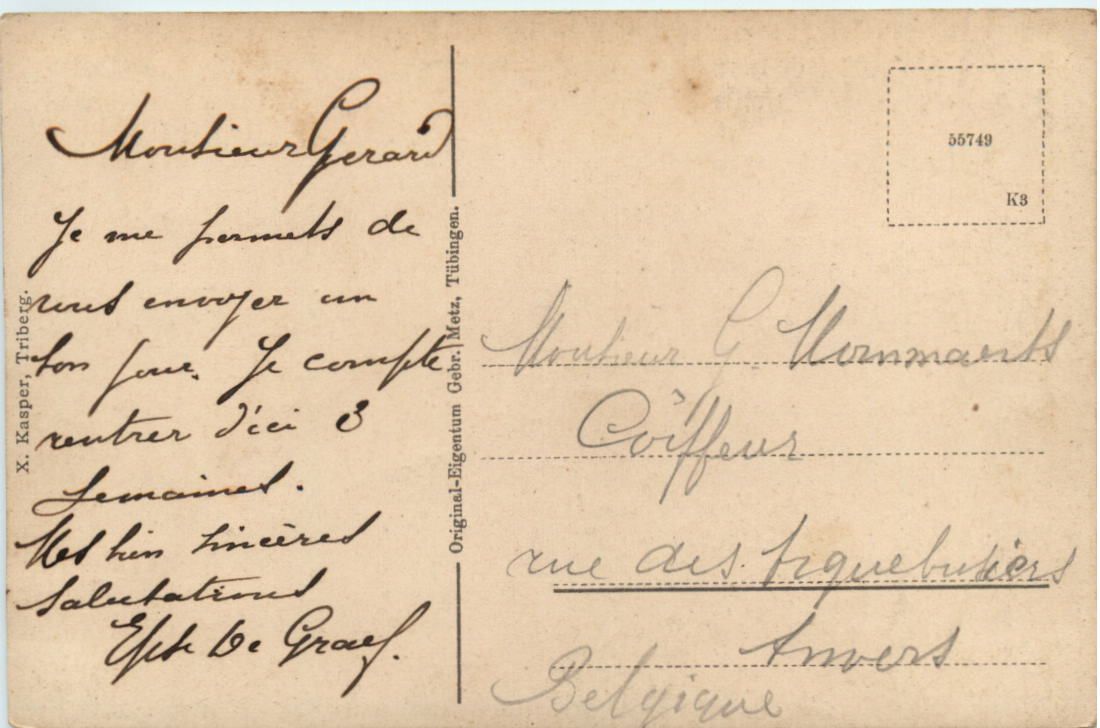 Monsieur Gerard
Je me permets de
vous envoyer un
bon jour. Je compte
rentrer d'ici 3
semaines.
Mes bien sincères
salutations
De Graef.
X. Kasper, Triberg.
Original-Eigentum Gebr. Metz, Tübingen.
55749
K3
Monsieur G.
Coiffeur
rue des Arquebusiers
Anvers
Belgique